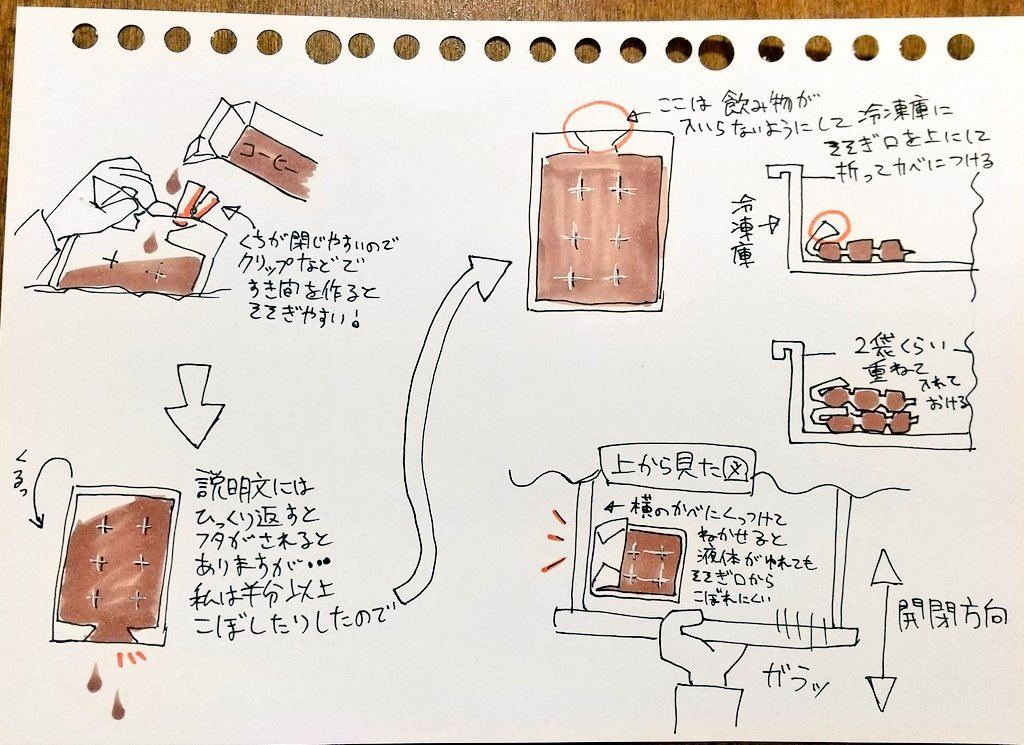 コーヒー
くちが閉じやすいので
クリップなどで
すき間を作ると
そそぎやすい!
くるっ
説明文には
ひっくり返すと
フタがされると
ありますが…
私は半分以上
こぼしたりしたので
ここは飲み物が
入いらないようにして
冷凍庫に
そそぎ口を上にして
折ってカベにつける
冷凍庫
2袋くらい
重ねて
入れて
おける
上から見た図
横のかべにくっつけて
ねかせると
液体がゆれても
そそぎ口から
こぼれにくい
開閉方向
ガラッ